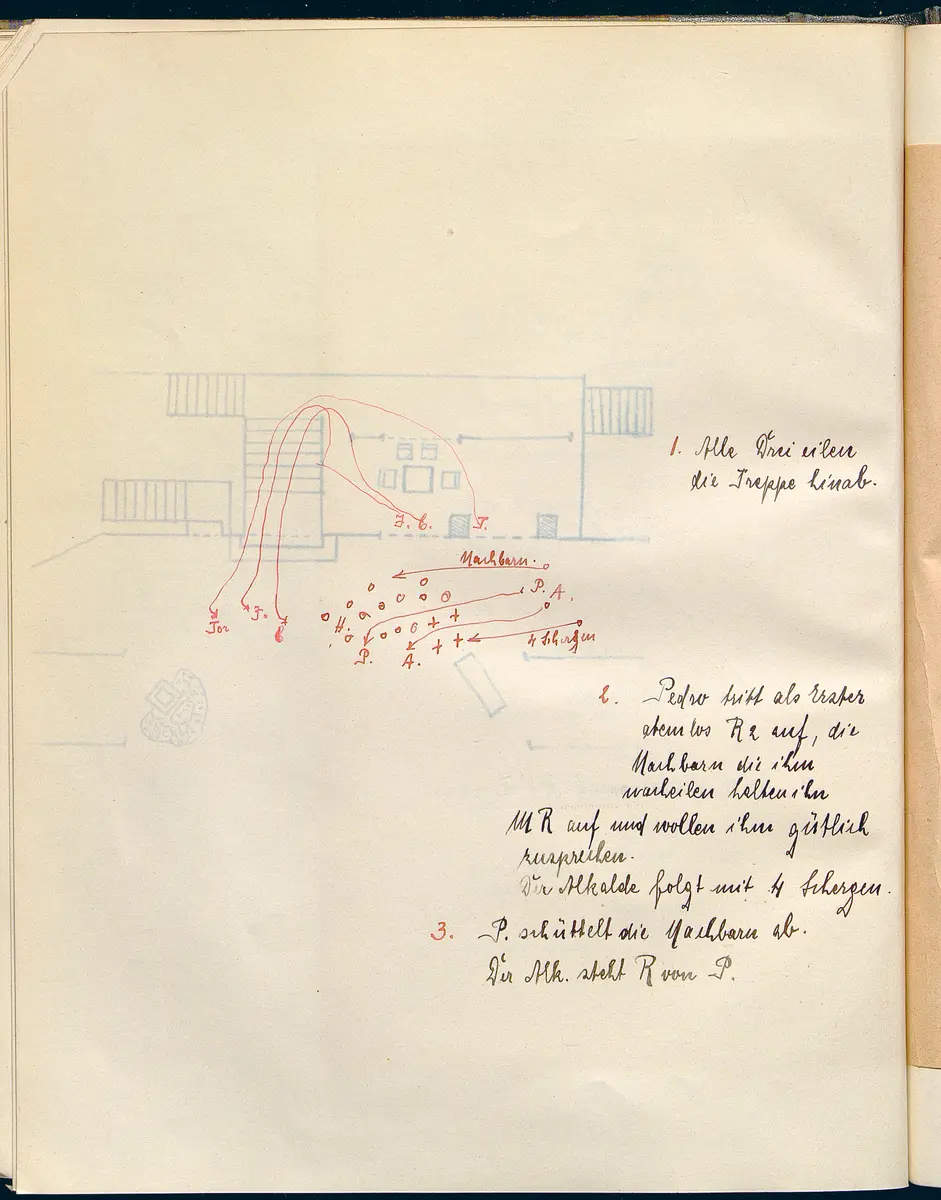 1. Alle Drei eilen
die Treppe hinab.
F. C. T.
Nachbarn.
P. A.
Tor F. C
H.
4 Schergen
P. A.
2. Pedro tritt als Erster
atemlos R 2 auf, die
Nachbarn die ihm
nacheilen halten ihn
M R auf und wollen ihm gütlich
zusprechen.
Der Alkalde folgt mit 4 Schergen.
3. P. schüttelt die Nachbarn ab.
Der Alk. steht R von P.